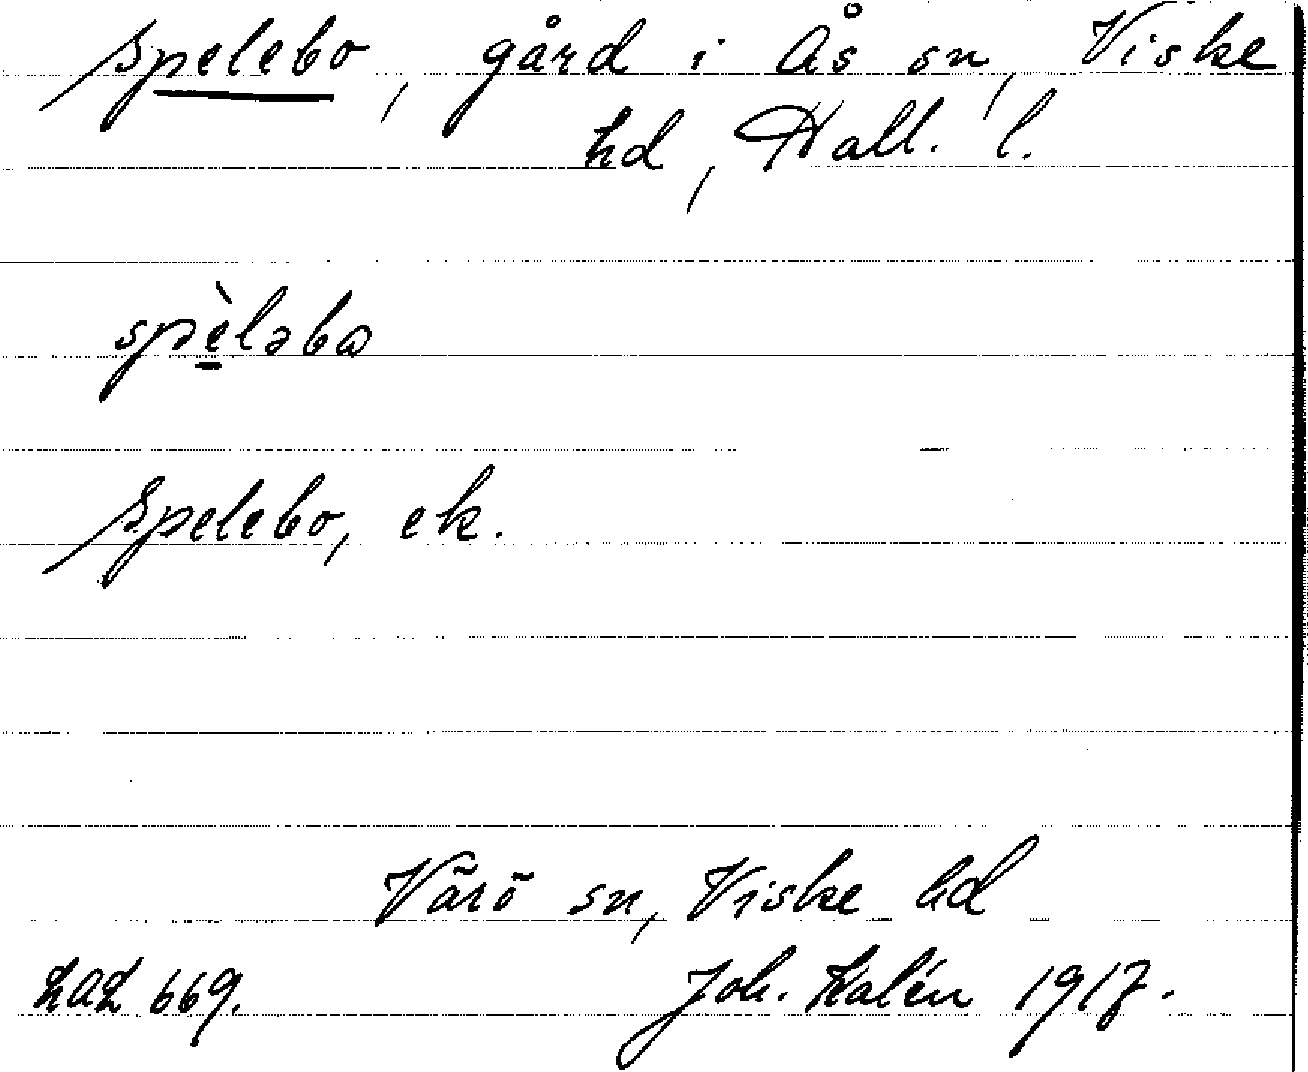 Spelebo, gård i Ås sn, Viske
hd, Hall. l.
spè̱ləbɷ
Spelebo, ek.
Värö sn, Viske hd
LAL 669. Joh. Kalén 1917.